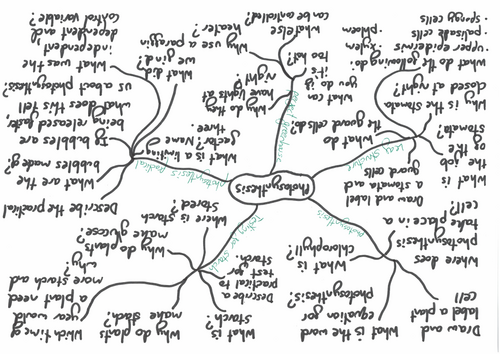 Draw and
label a plant
cell
What is the word
equation for
photosynthesis?
Which time of
year would
a plant need
more starch and
why?
Why do plants
make starch?
What is
starch?
Describe a
practical to
test for
starch.
Why do plants
make glucose?
Where is
starch
stored?
Testing for starch
Where does
photosynthesis
take place in a
cell?
What is
chlorophyll?
photosynthesis
Photosynthesis
Describe the practical
What are the
bubbles made of?
If bubbles are
being released faster,
what does this tell
us about photosynthesis?
What was the
independent,
dependent and
control variable?
What did
we find?
What is a limiting
factor? Name
three.
Photosynthesis practical
What is
the job
of the
stomata?
Draw and label
a stomata and
guard cells
What do
the guard cells do?
Why is the stomata
closed at night?
What do the following do:
· upper epidermis
· palisade cells
· spongy cells
· xylem
· phloem
Leaf structure
Why do they
have lights at
night?
What can
you do if
it's
too hot?
What else
can be controlled?
Why use a paraffin
heater?
Perfect greenhouse